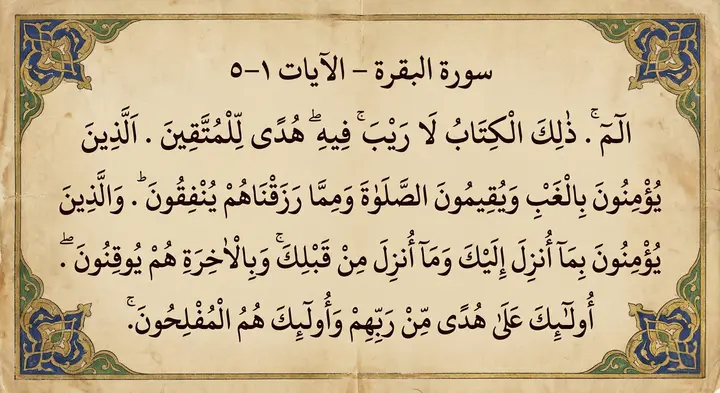 سورة البقرة – الآيات ١-٥
الٓمٓ ۚ. ذَٰلِكَ الْكِتَابُ لَا رَيْبَ ۚ فِيهِ ۖ هُدًى لِّلْمُتَّقِينَ . اَلَّذِينَ
يُؤْمِنُونَ بِالْغَبْ وَيُقِيمُونَ الصَّلَوٰةَ وَمِمَّا رَزَقْنَاهُمْ يُنْفِقُونَ ؕ. وَالَّذِينَ
يُؤْمِنُونَ بِمَآ أُنزِلَ إِلَيْكَ وَمَآ أُنزِلَ مِنْ قَبْلِكَ ۚ وَبِالْاٰخِرَةِ هُمْ يُوقِنُونَ ۖ.
أُولَٰٓئِكَ عَلَىٰ هُدًى مِّنْ رَبِّهِمْ وَأُولَٰٓئِكَ هُمُ الْمُفْلِحُونَ ۚ.